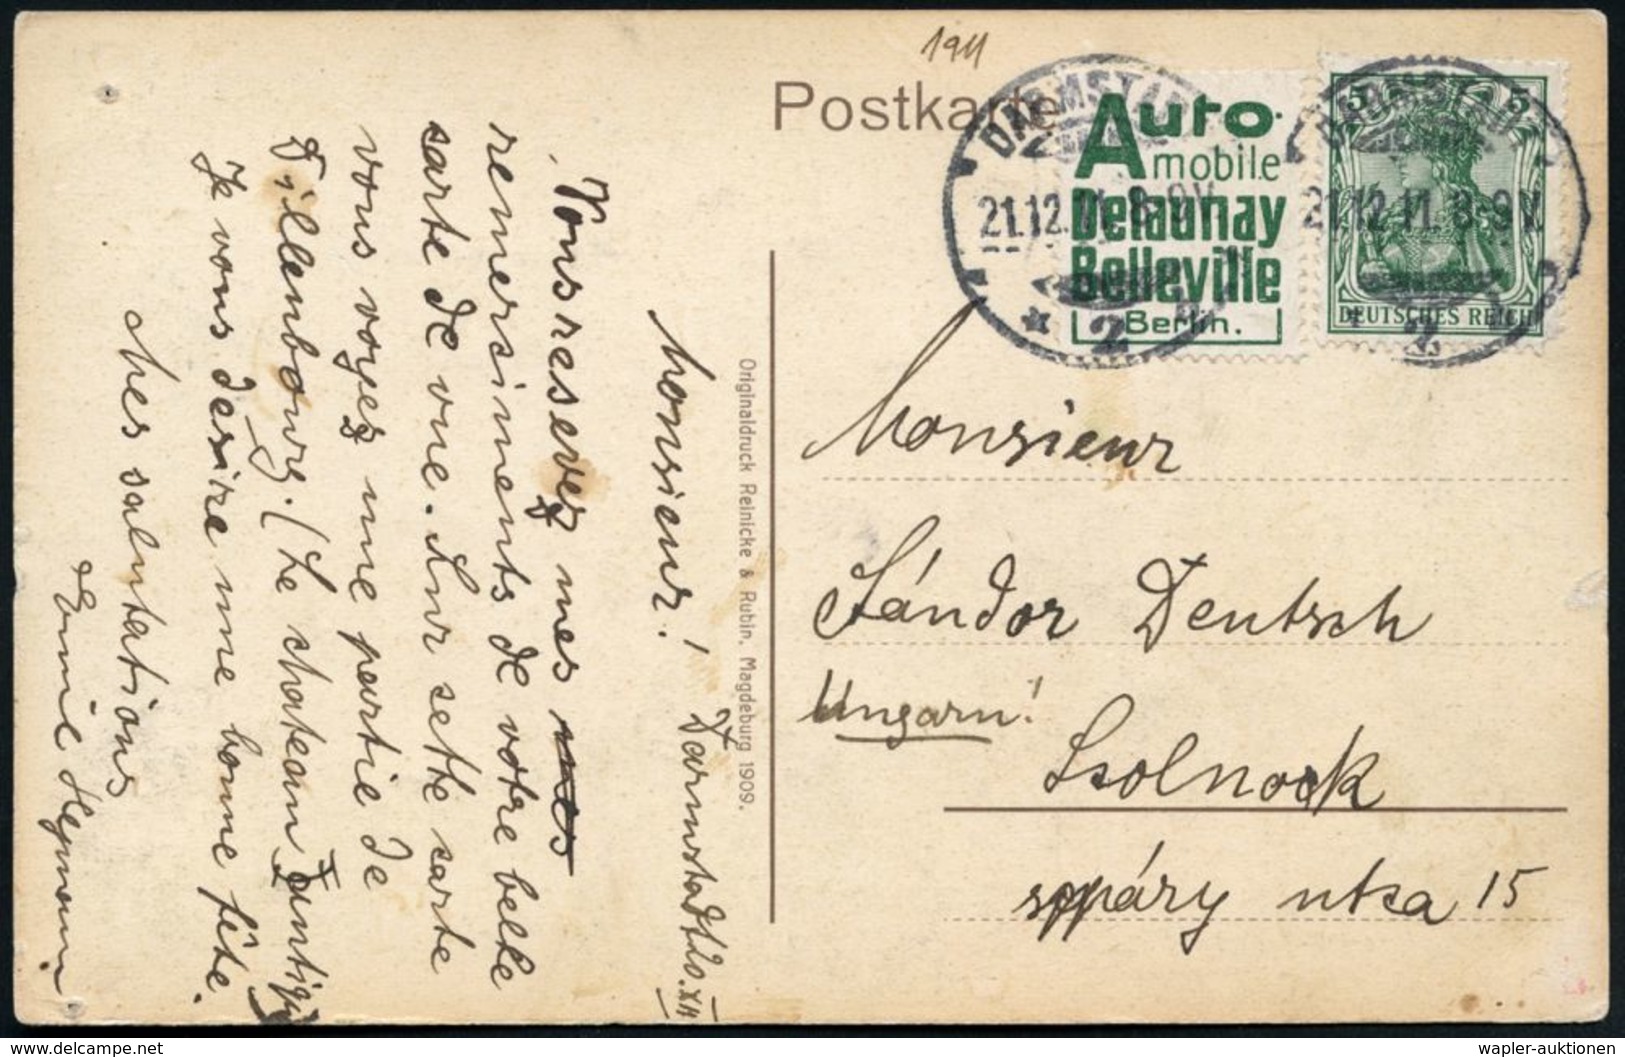 1911
Postkarte
DARMSTADT
21.12.11. 8-9V.
* 2
Auto-
mobile
Delaunay
Belleville
Berlin.
DARMSTADT
21.12.11. 8-9V.
2
5 5
DEUTSCHES REICH
Monsieur
Sándor Deutsch
Ungarn!
Szolnock
utsa 15
Originaldruck Reinicke & Rubin, Magdeburg 1909.
Darmstadt 20.XII
Monsieur!
Vous resevez mes mes
remersiments de votre belle
carte de vue. Sur sette carte
vous voyez une partie de
Dillenbourg. (Le chateau
Je vous desire une bonne fête.
Mes salutations
Heymann.
delcampe.net
wapler-auktionen